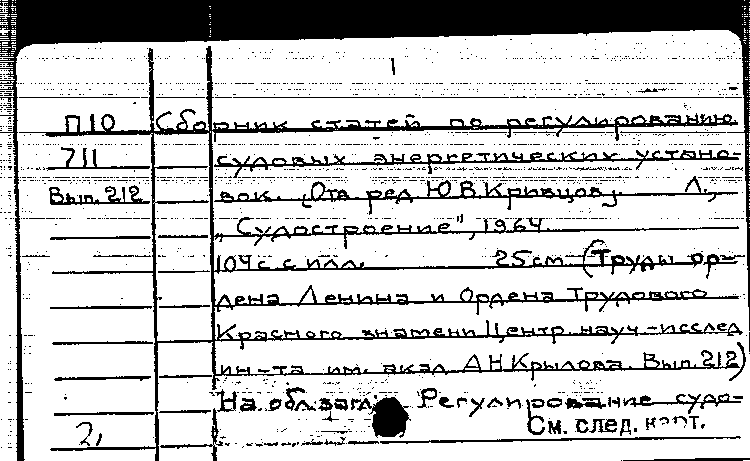 1
П10 Сборник статей по регулированию
711 судовых энергетических устано-
Вып. 212 вок. (Отв ред Ю.В.Кривцов). Л.,
„Судостроение", 1964.
104с. с илл. 25см (Труды ор-
дена Ленина и Ордена Трудового
Красного знамени Центр. науч.-исслед
ин-та им. акад А.Н.Крылова. Вып. 212)
На обл.загл: Регулирование судо-
2, См. след. карт.